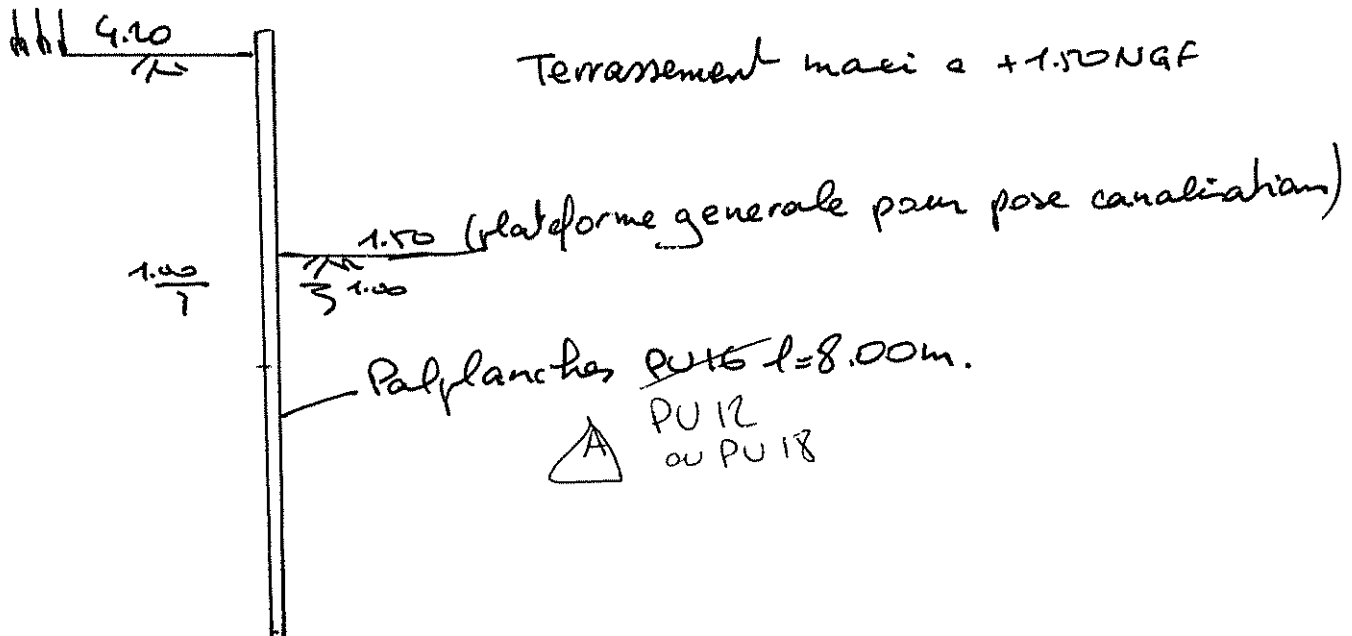 4.20
Terrassement maxi a +1.50 NGF
1.50 (plateforme generale pour pose canalisation)
1.00
1.00
Palplanches PU16 l=8.00m.
A
PU 12
ou PU 18